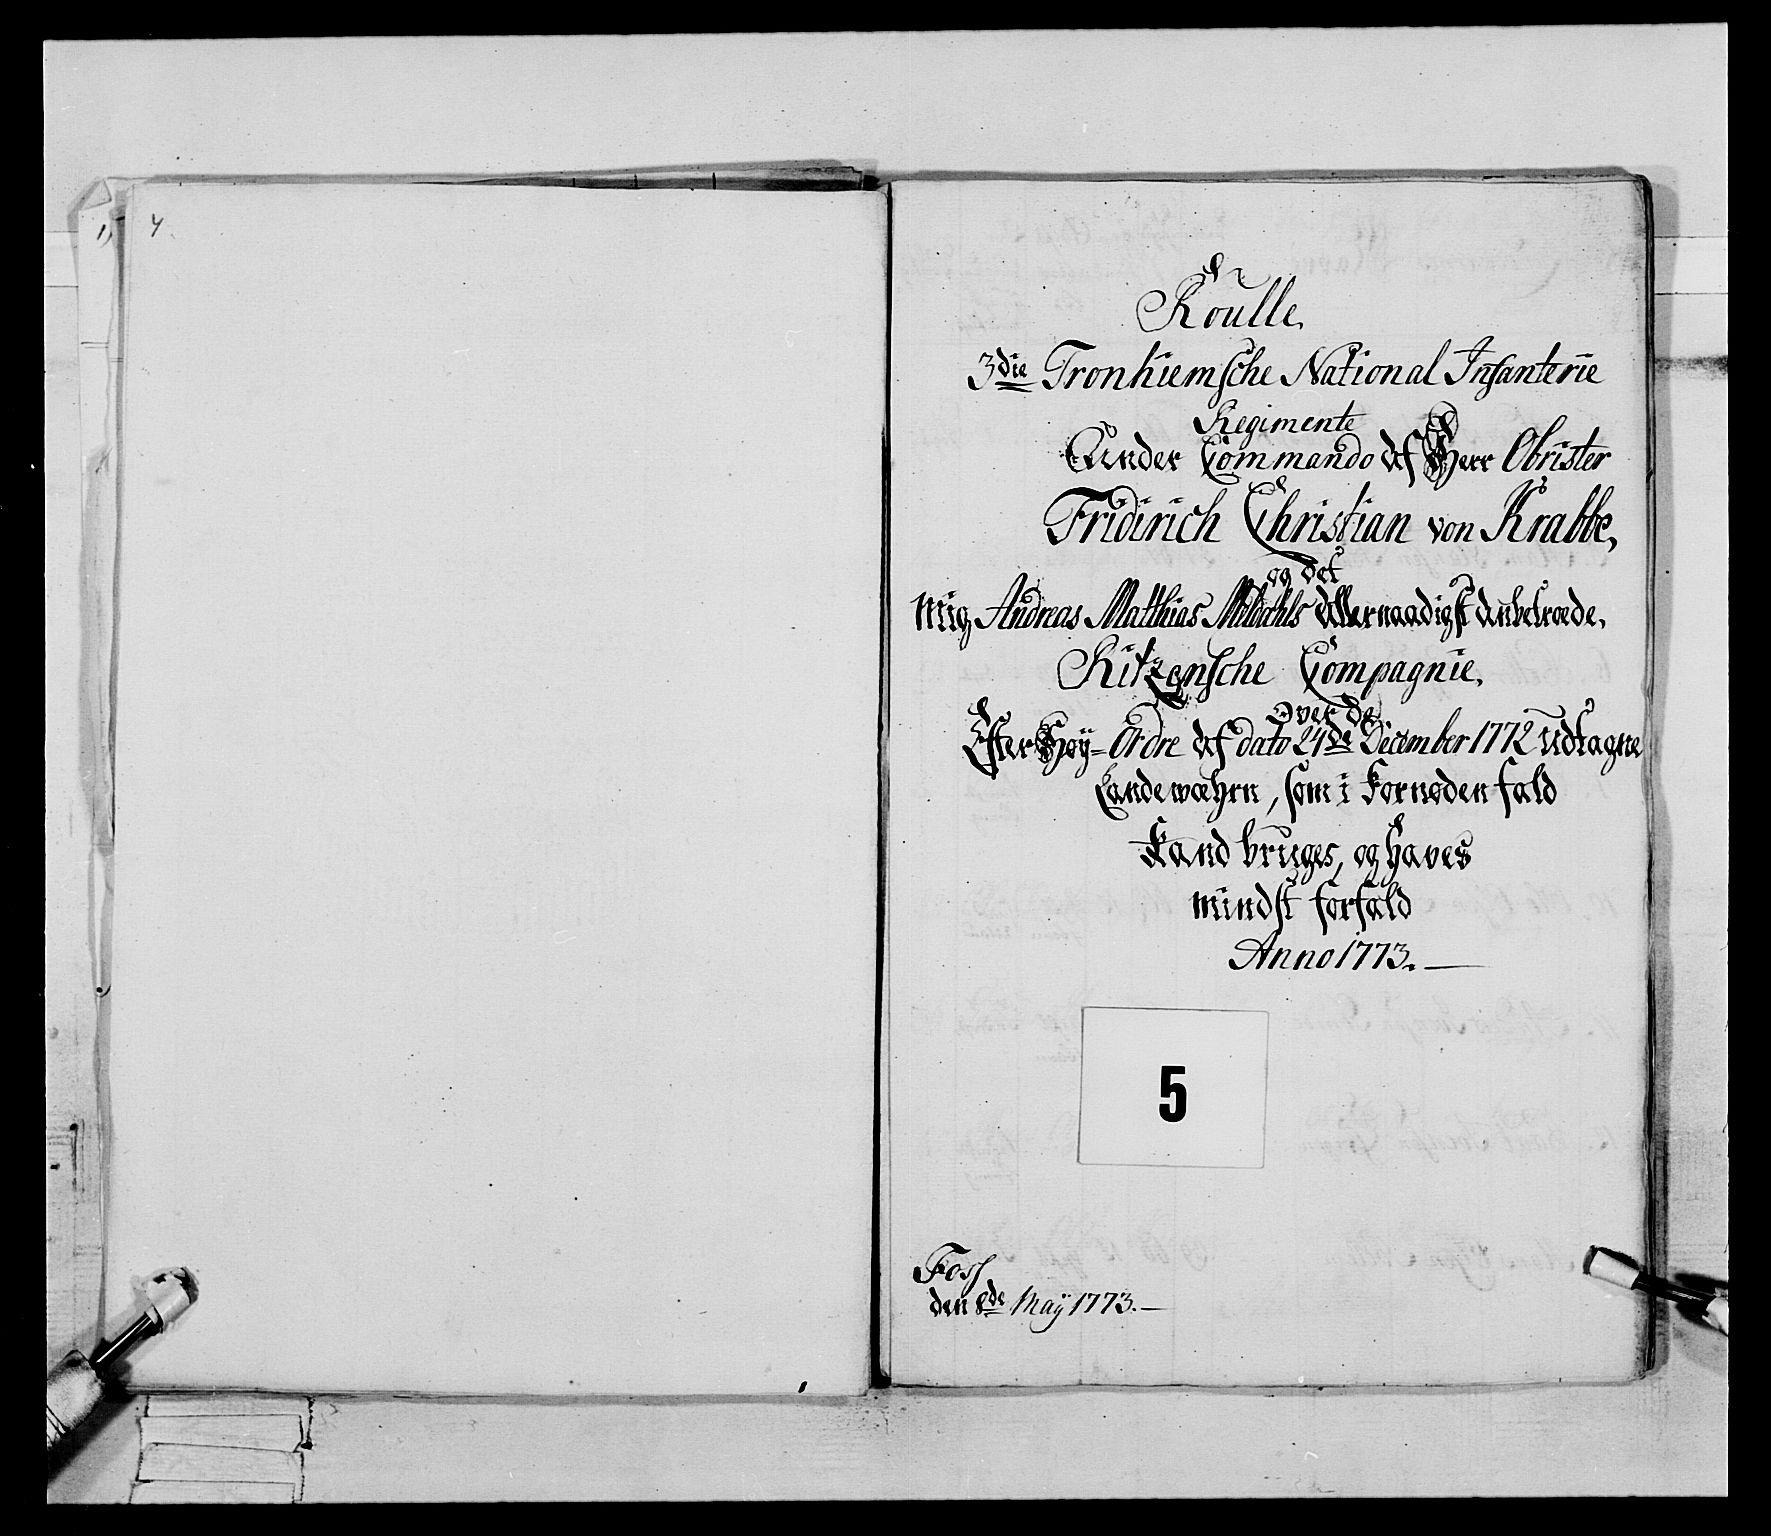 Roulle,
3die Tronhiemsche National Infanterie
Regimente
Under Commando af Herr Obrister
Fridirich Christian von Krabbe,
og det
mig Andreas Matthias Meldahls allernaadigst anbetroede,
Ritzensche Compagnie,
over de
Efter Høÿ=Ordre af dato 24de December 1772 udtagne
Landewæhrn, som i Fornøden fald
kand bruges, og haves
mindst forfald
Anno 1773. —
5
Foss
den 8de Maÿ 1773. —